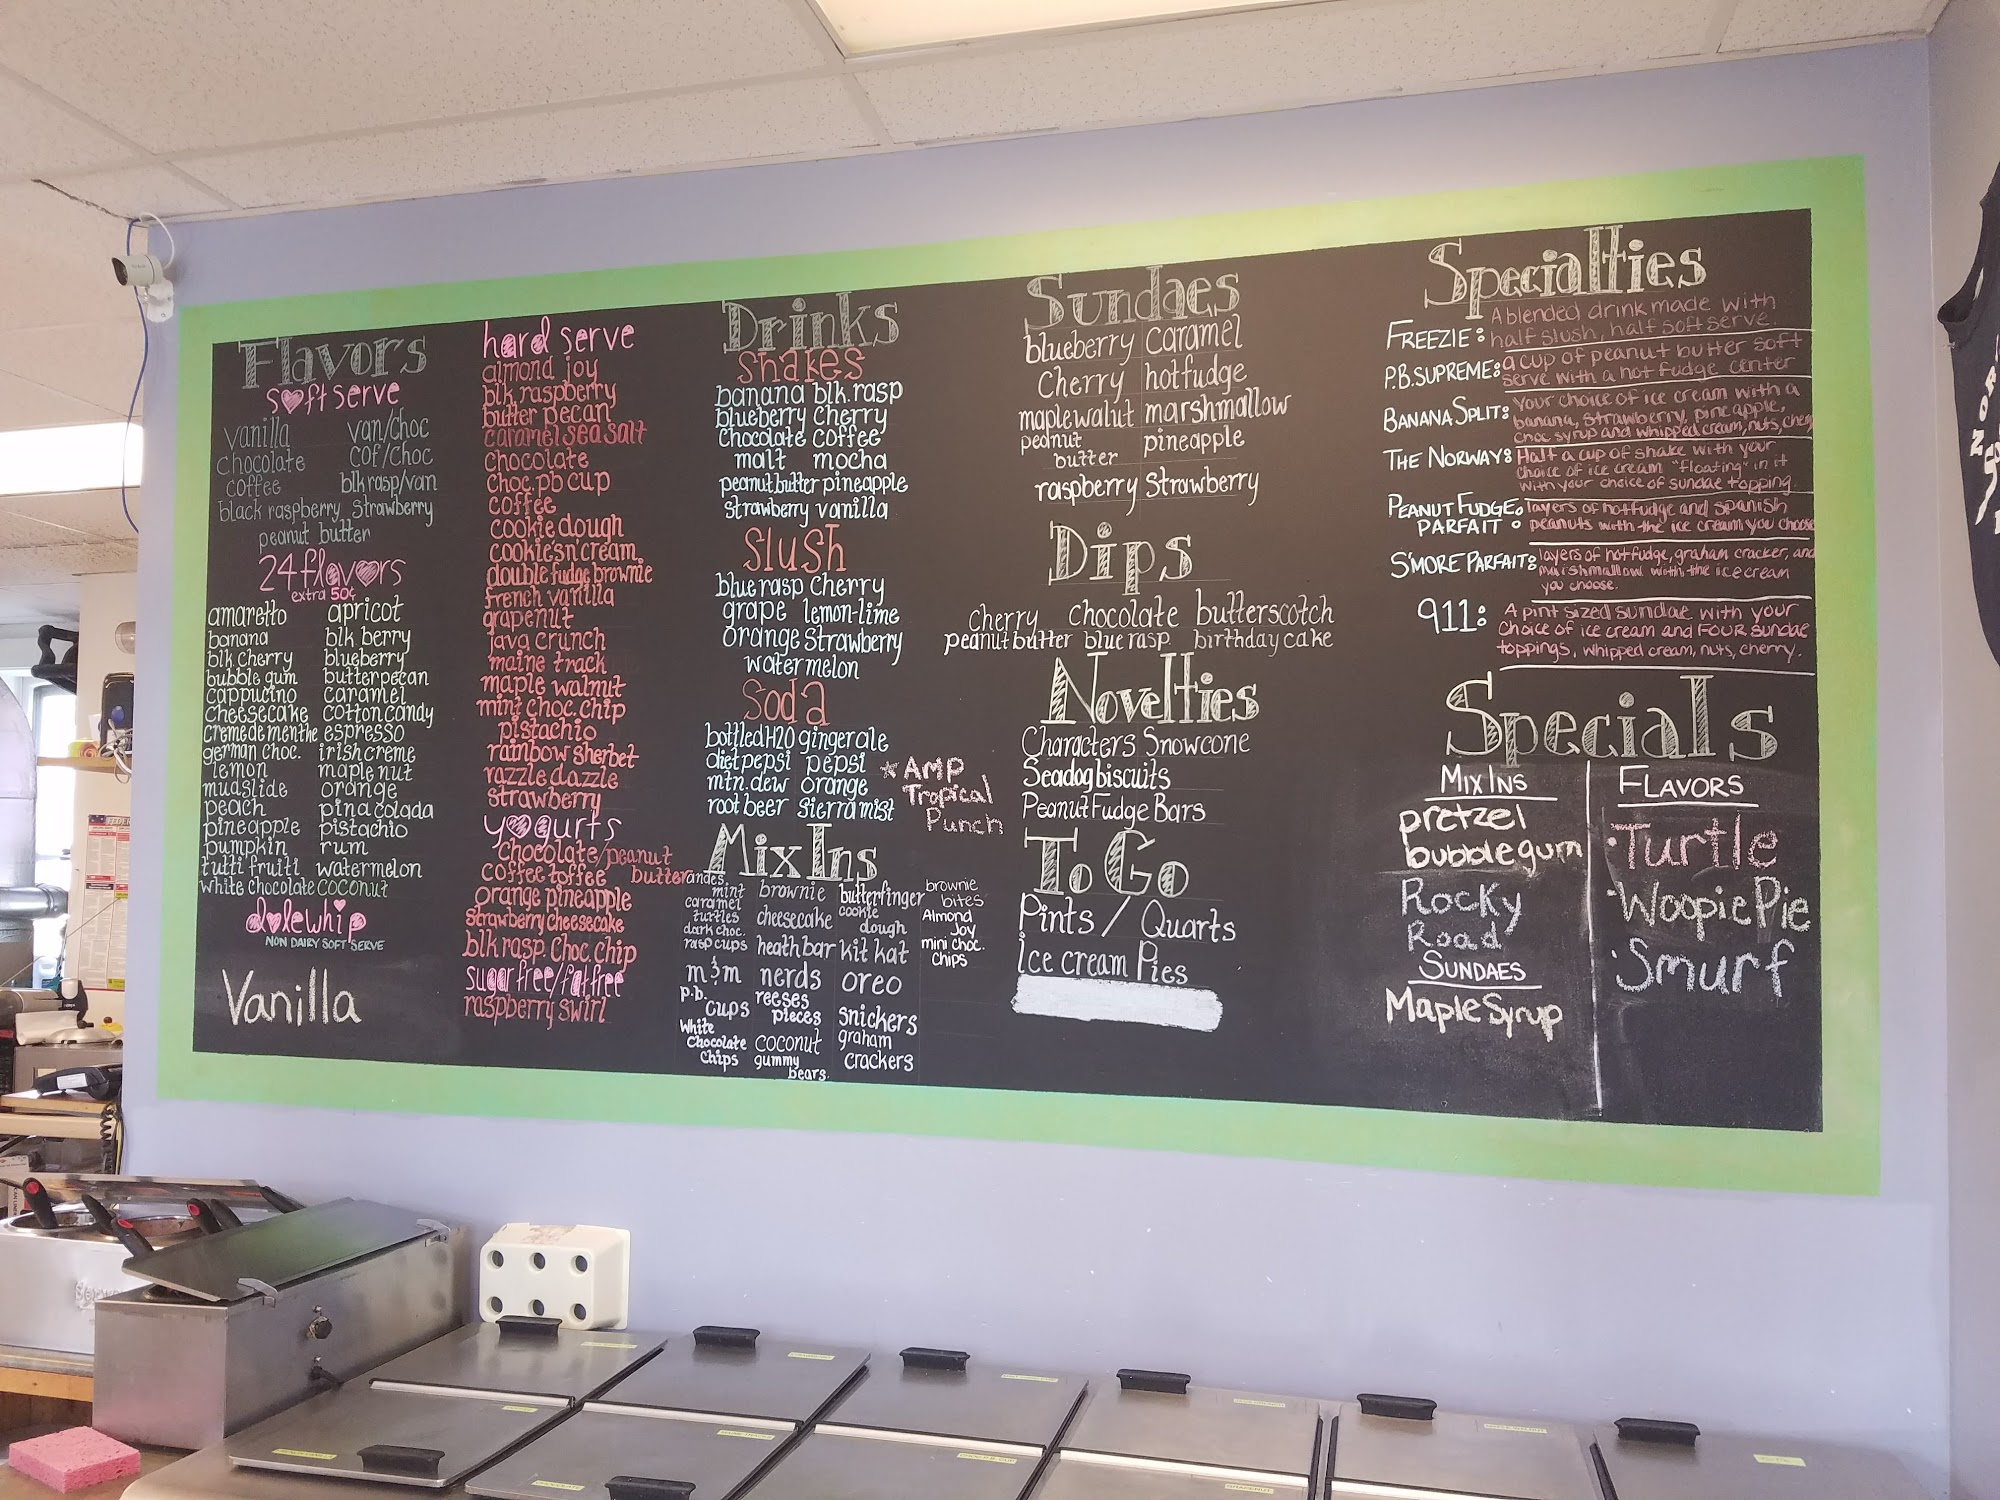 Flavors
soft serve
vanilla van/choc
chocolate cof/choc
coffee blk rasp/van
black raspberry strawberry
peanut butter
24 flavors
extra 50¢
amaretto apricot
banana blk berry
blk cherry blueberry
bubble gum butterpecan
cappucino caramel
cheesecake cotton candy
creme de menthe espresso
german choc. irish creme
lemon maple nut
mudslide orange
peach pina colada
pineapple pistachio
pumpkin rum
tutti fruiti watermelon
white chocolate coconut
dolewhip
NON DAIRY SOFT SERVE
Vanilla
hard serve
almond joy
blk. raspberry
butter pecan
caramel sea salt
chocolate
choc. pb cup
coffee
cookie dough
cookies'n'cream
double fudge brownie
french vanilla
grapenut
java crunch
maine track
maple walnut
mint choc. chip
pistachio
rainbow sherbet
razzle dazzle
strawberry
yogurts
chocolate/peanut butter
coffee toffee
orange pineapple
strawberry cheesecake
blk rasp. choc. chip
sugar free/fat free
raspberry swirl
Drinks
Shakes
banana blk. rasp
blueberry cherry
chocolate coffee
malt mocha
peanut butter pineapple
strawberry vanilla
Slush
blue rasp cherry
grape lemon-lime
orange strawberry
watermelon
Soda
bottled H2O ginger ale
diet pepsi pepsi
mtn. dew orange
root beer sierra mist
* AMP
Tropical
Punch
Mix Ins
andes mint brownie butterfinger brownie bites
caramel turtles cheesecake cookie dough Almond Joy
dark choc. rasp cups heath bar kit kat mini choc. chips
m&m nerds oreo
p.b. cups reeses pieces snickers
White Chocolate Chips coconut graham crackers
gummy bears.
Sundaes
blueberry caramel
Cherry hot fudge
maple walnut marshmallow
peanut butter pineapple
raspberry Strawberry
Dips
cherry chocolate butterscotch
peanut butter blue rasp birthday cake
Novelties
Characters Snowcone
Seadog biscuits
Peanut Fudge Bars
To Go
Pints / Quarts
Ice cream Pies
Specialties
FREEZIE: A blended drink made with
half slush, half soft serve.
P.B. SUPREME: a cup of peanut butter soft
serve with a hot fudge center
BANANA SPLIT: Your choice of ice cream with a
banana, strawberry, pineapple,
choc syrup and whipped cream, nuts, cherry
THE NORWAY: Half a cup of shake with your
choice of ice cream "floating" in it
with your choice of sundae topping.
PEANUT FUDGE PARFAIT: layers of hot fudge and spanish
peanuts with the ice cream you choose
S'MORE PARFAIT: layers of hot fudge, graham cracker, and
marshmallow with the ice cream
you choose.
911: A pint sized sundae with your
choice of ice cream and FOUR sundae
toppings, whipped cream, nuts, cherry.
Specials
MIX INS
pretzel
bubblegum
Rocky
Road
SUNDAES
Maple Syrup
FLAVORS
·Turtle
·Woopie Pie
·Smurf